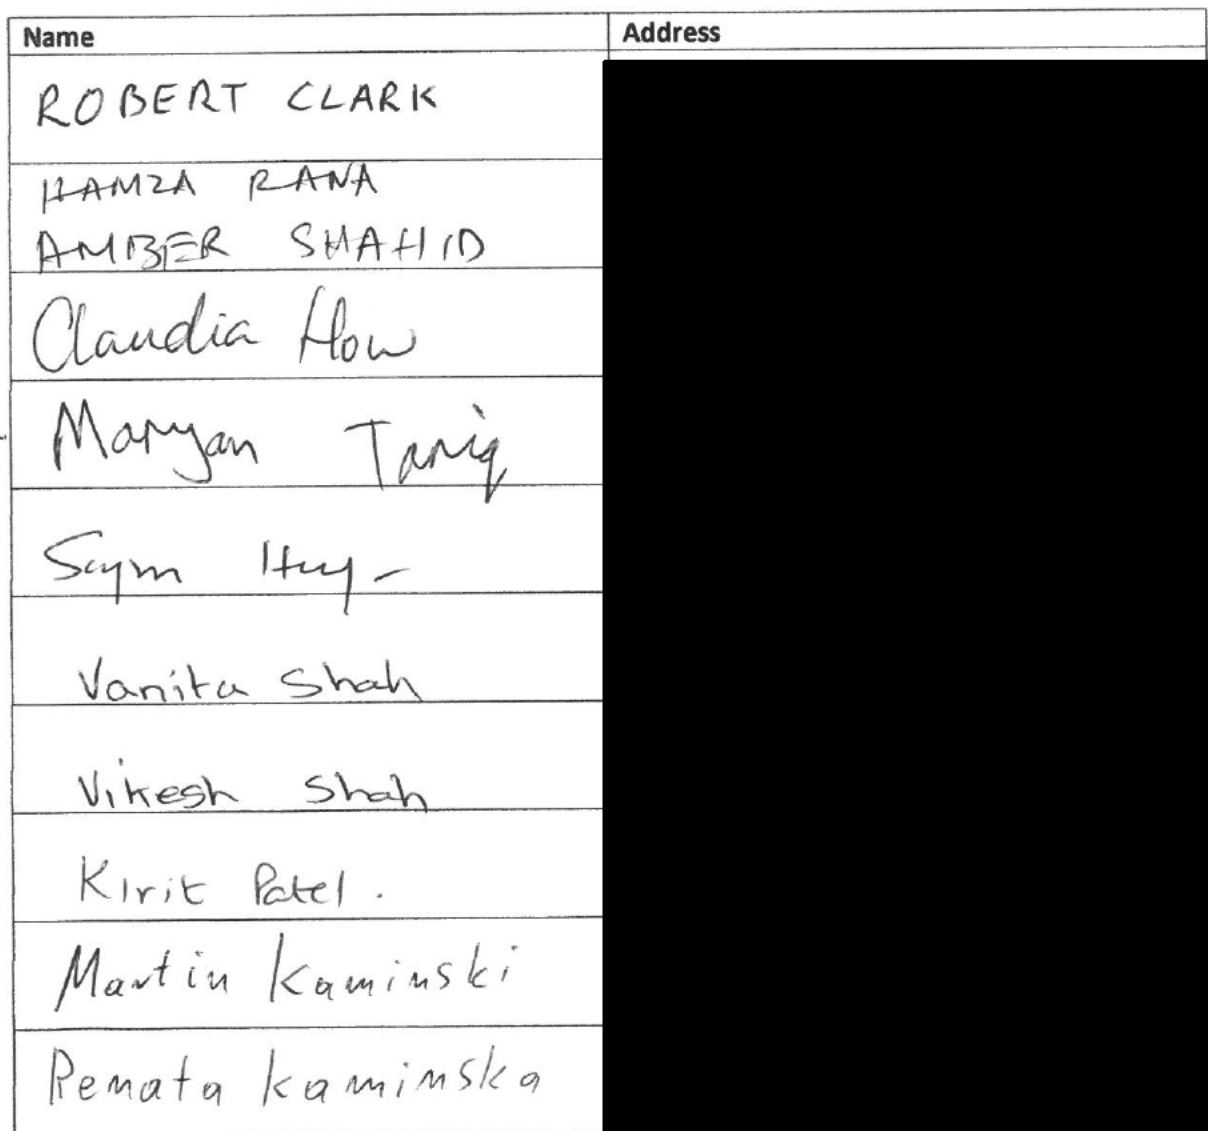 Name Address
ROBERT CLARK
HAMZA RANA
AMBER SHAHID
Claudia How
Maryam Tariq
Vanita Shah
Vikesh Shah
Kirit Patel.
Martin Kaminski
Renata Kaminska